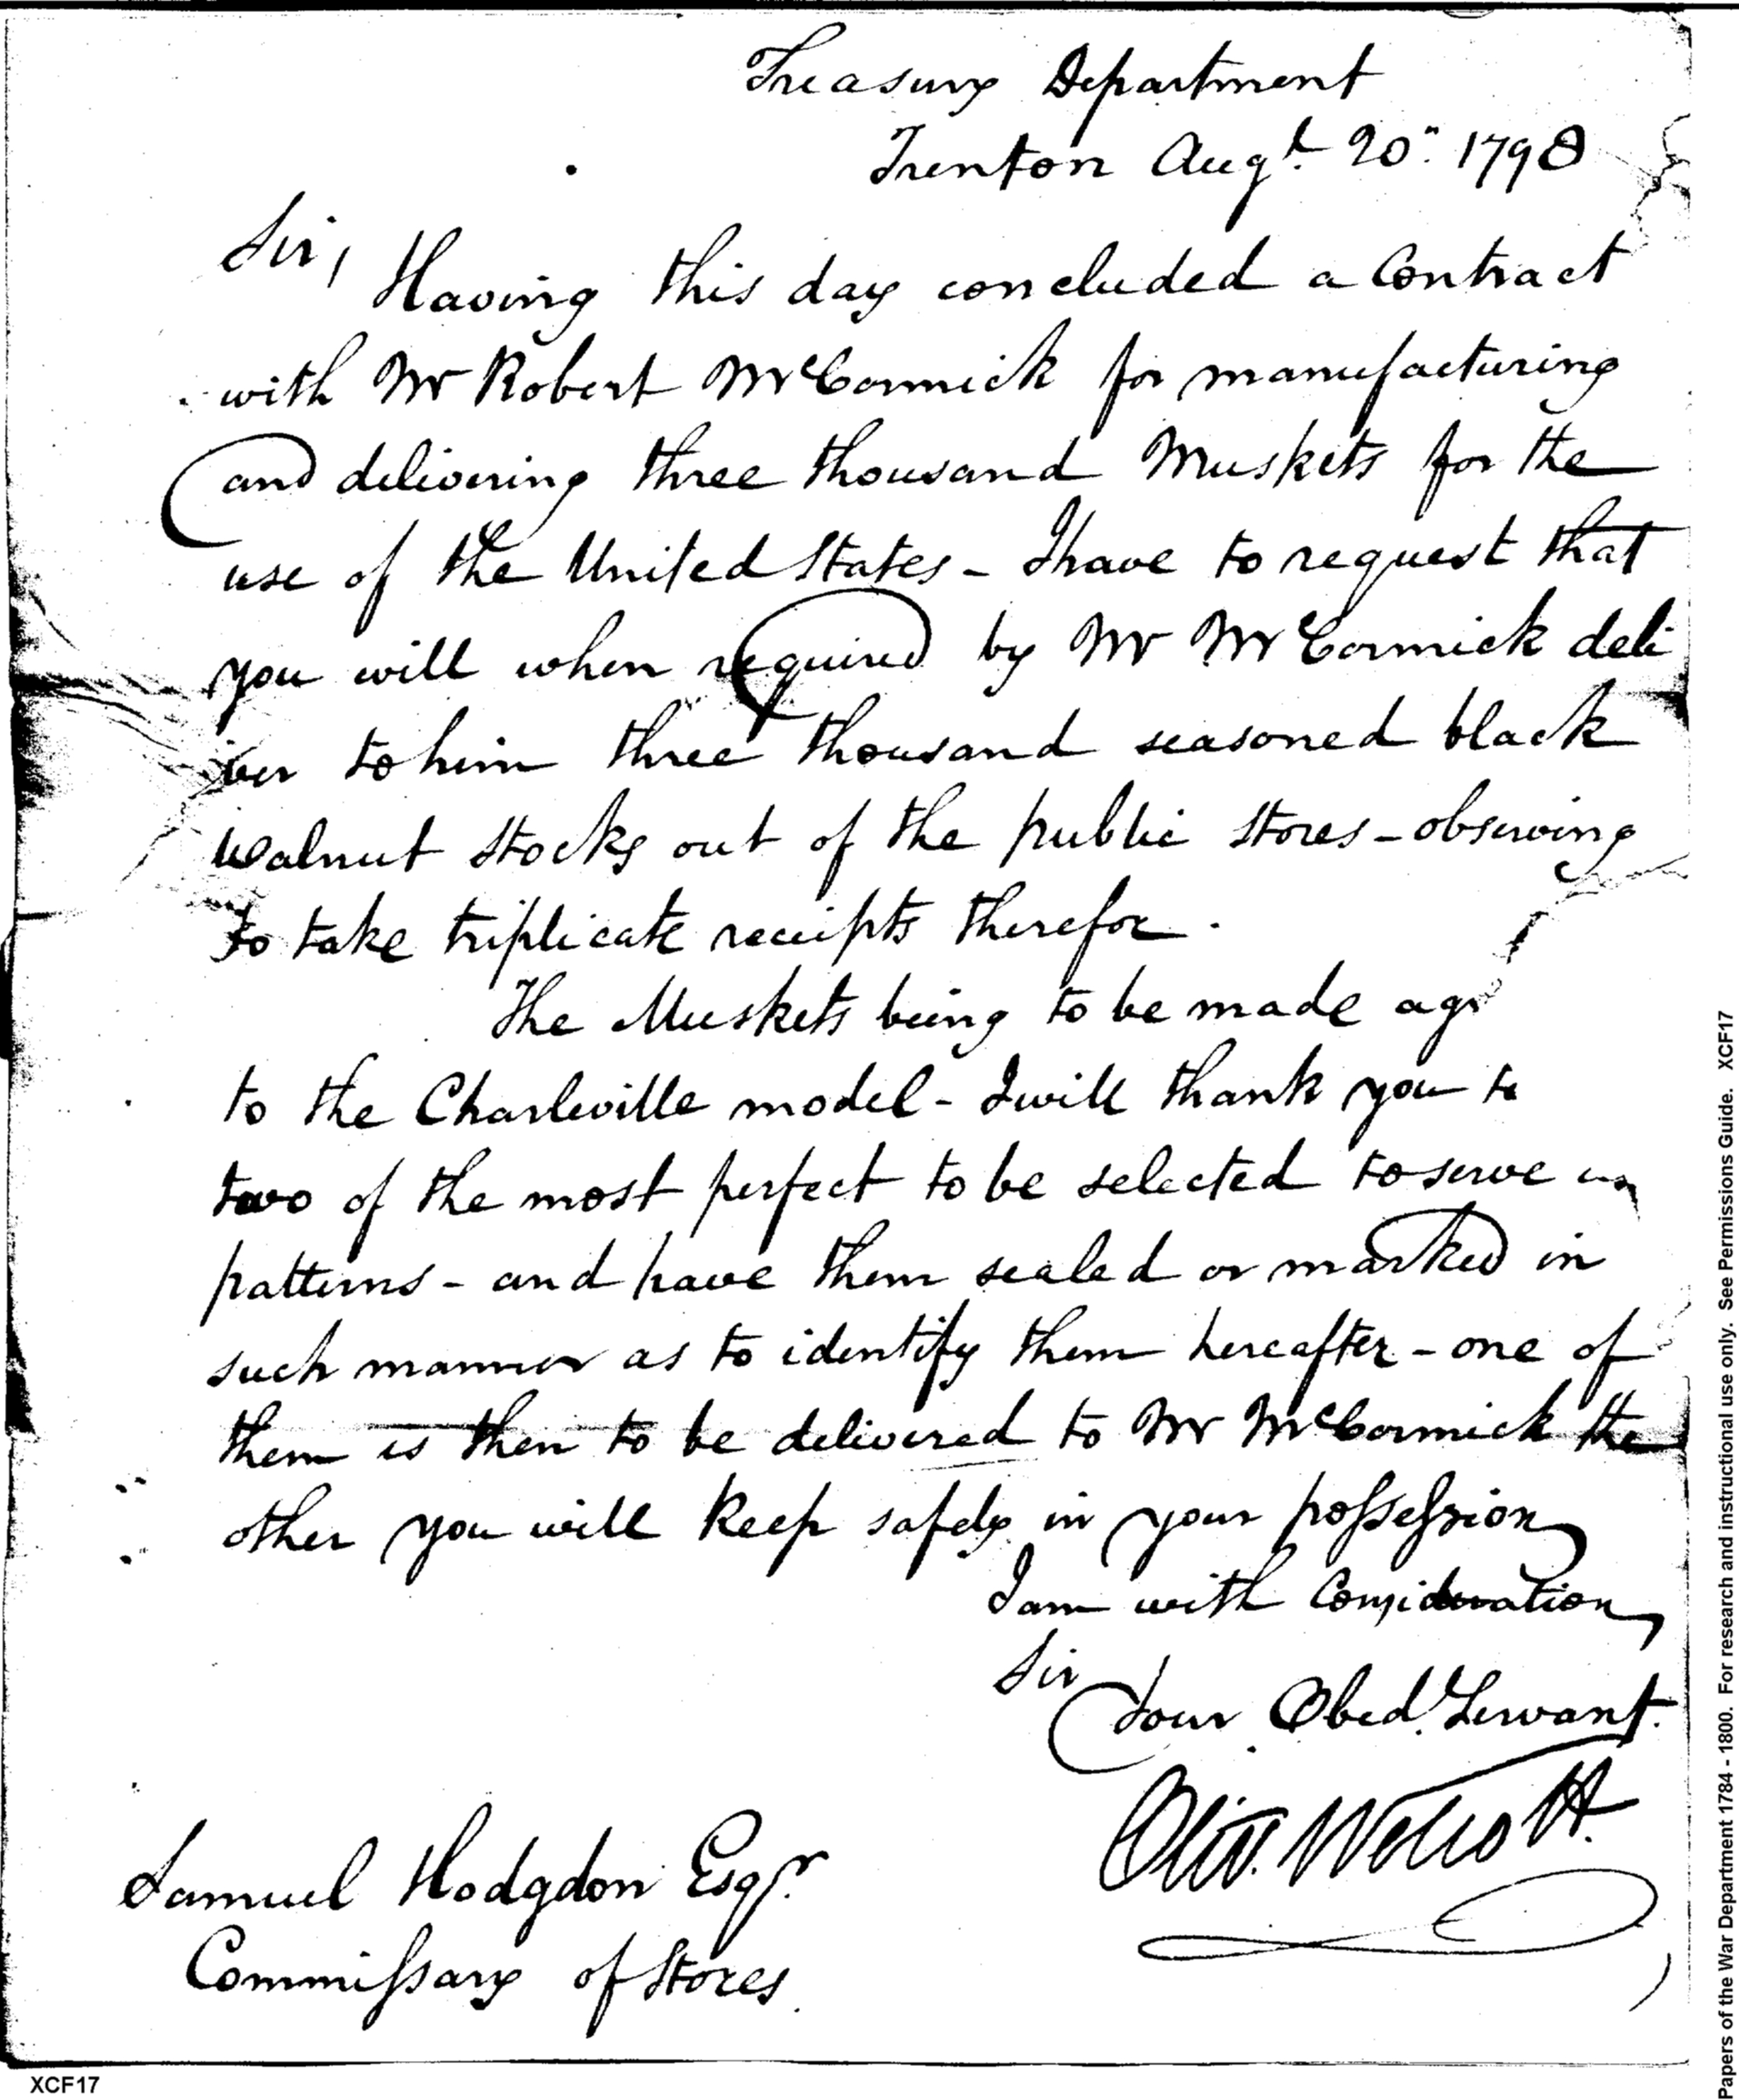 Treasury Department
Trenton Augt. 20th. 1798
Sir,
Having this day concluded a Contract
with Mr Robert McCormick for manufacturing
and delivering three thousand Muskets for the
use of the United States - I have to request that
you will when required by Mr McCormick deli
iver to him three thousand seasoned black
walnut stocks out of the public stores - observing
to take triplicate receipts therefor.
The Muskets being to be made agr
to the Charleville model - I will thank you to
two of the most perfect to be selected to serve as
patterns - and have them sealed or marked in
such manner as to identify them hereafter - one of
them is then to be delivered to Mr McCormick the
other you will keep safely in your possession
I am with Consideration,
Sir
Your Obed. Servant.
Oliv. Wolcott.
Samuel Hodgdon Esqr.
Commissary of Stores.
XCF17
Papers of the War Department 1784 - 1800. For research and instructional use only. See Permissions Guide. XCF17